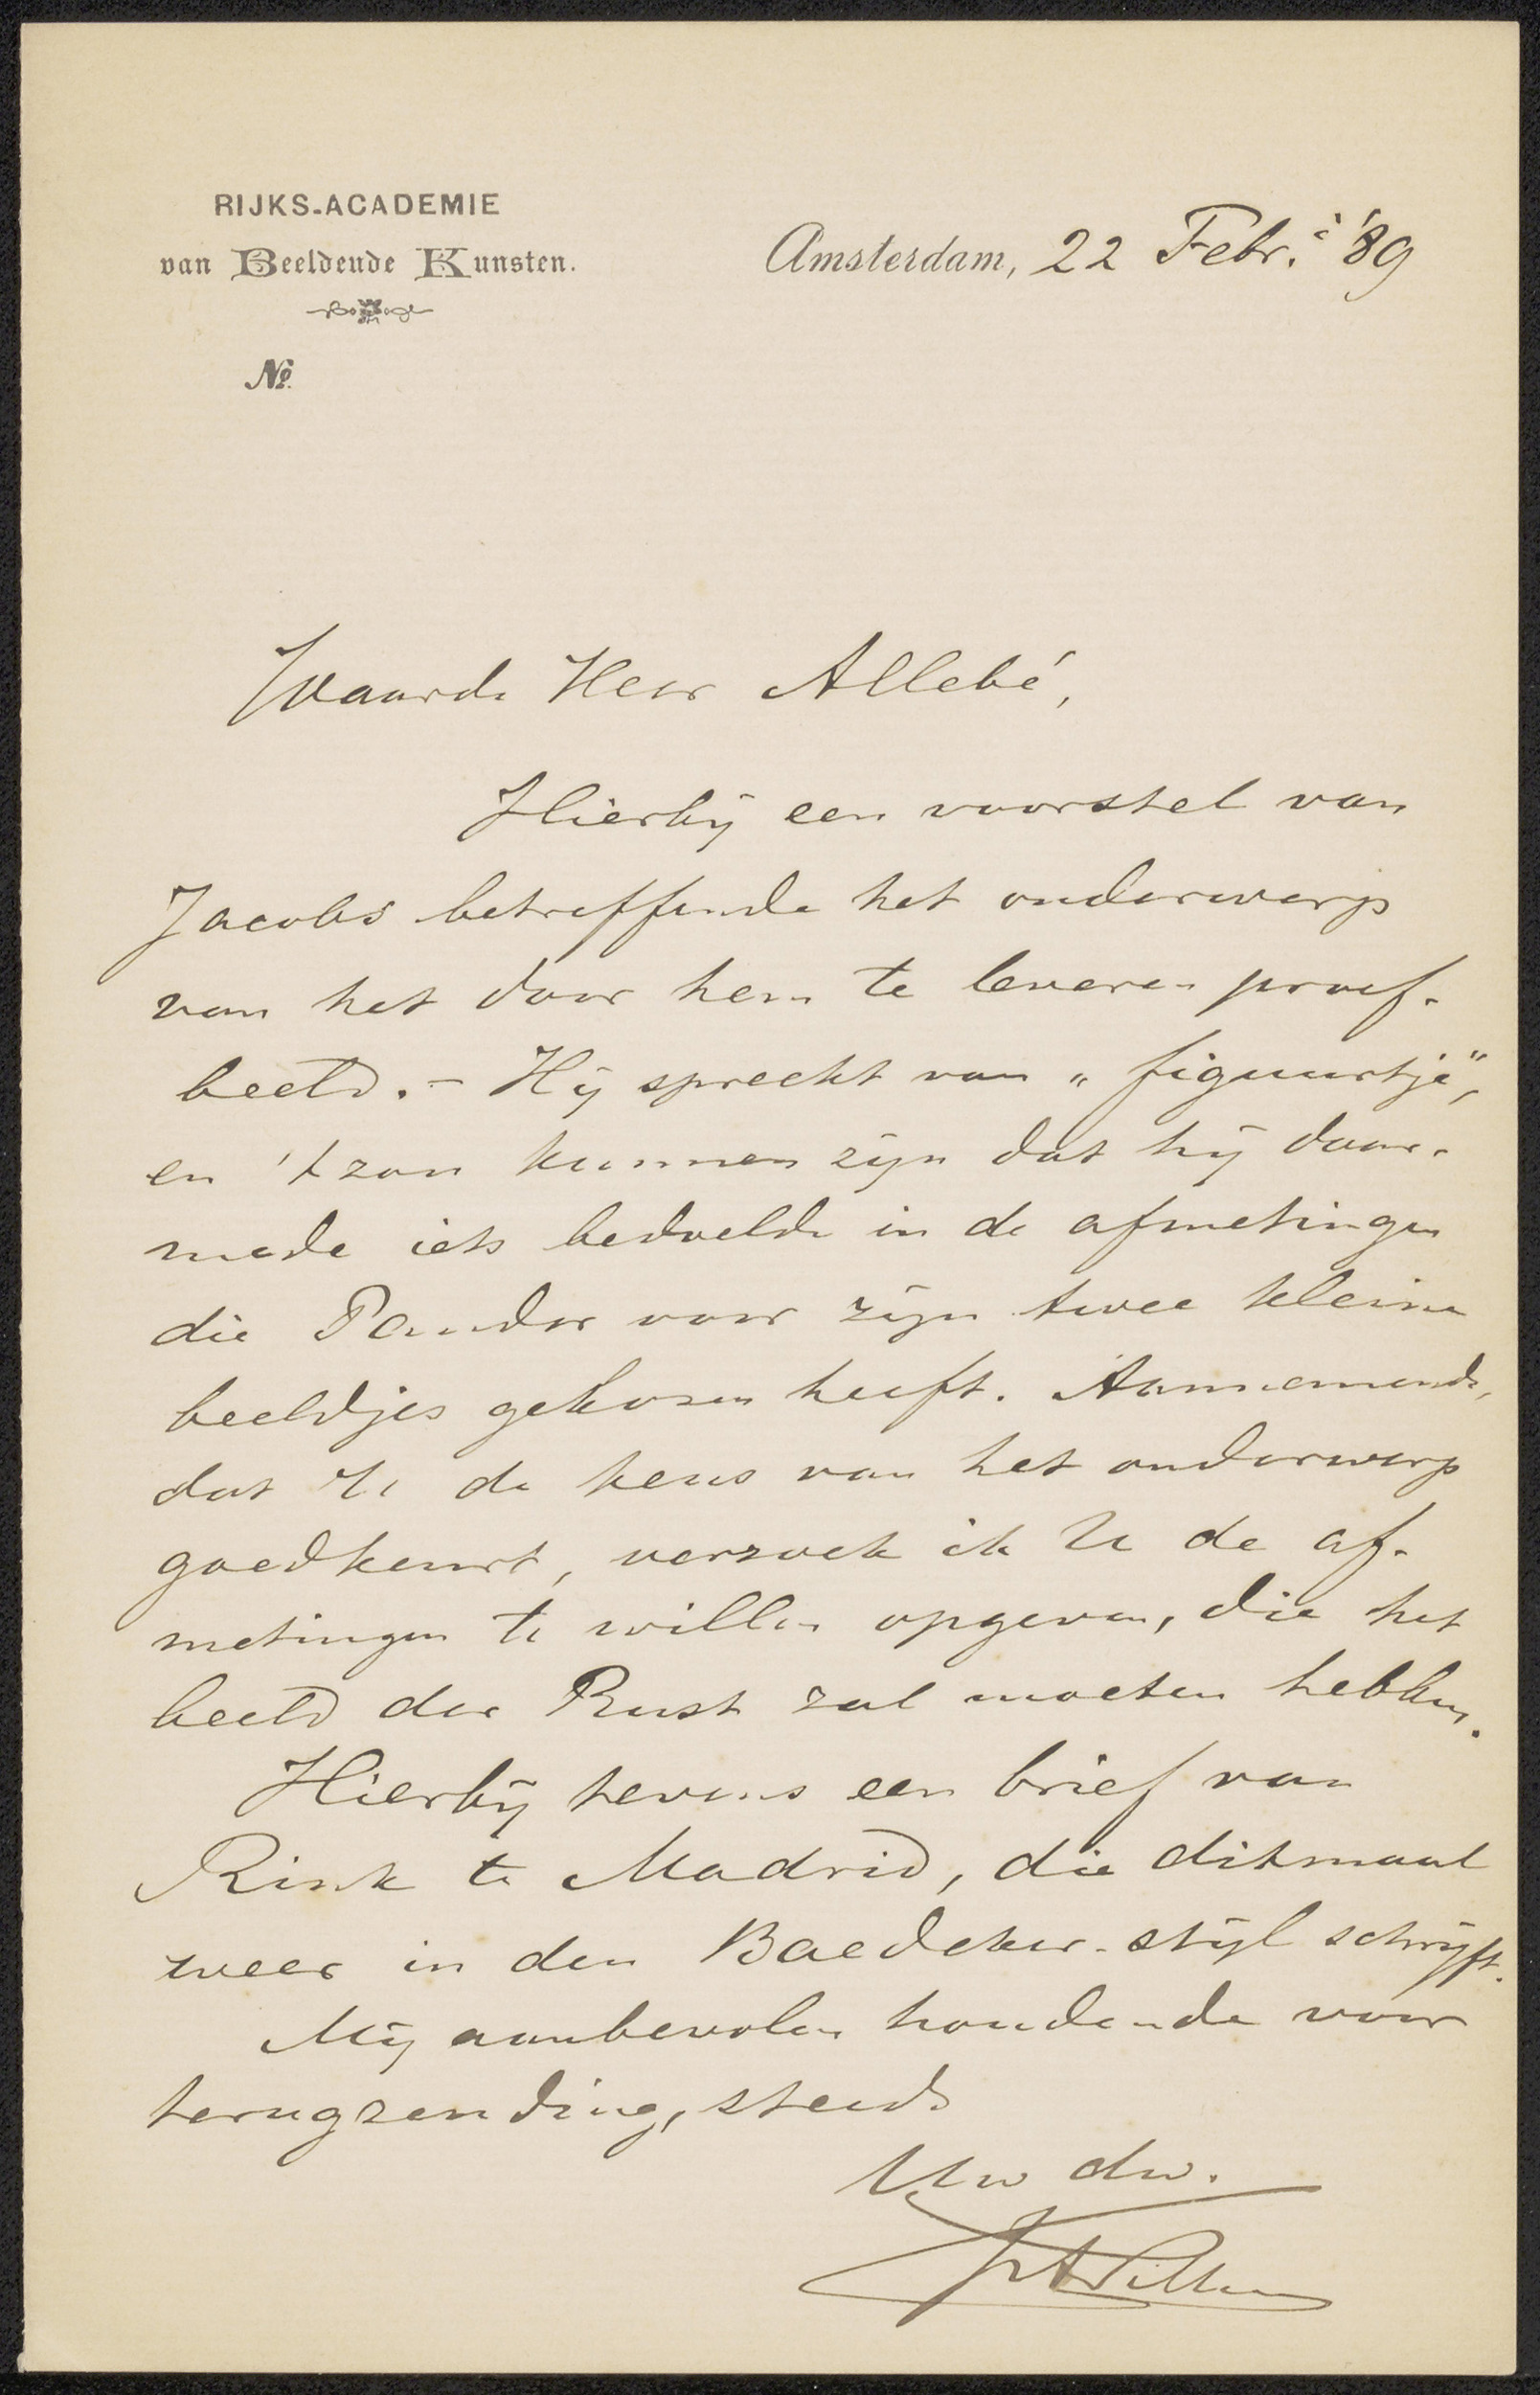 RIJKS-ACADEMIE
van Beeldende Kunsten.
Nº
Amsterdam, 22 Febr. '89
Waarde Heer Allebé,
Hierbij een voorstel van
Jacobs betreffende het onderwerp
van het door hem te leveren proef-
beeld. - Hij spreekt van „figuurtje",
en 't zou kunnen zijn dat hij daar-
mede iets bedoelde in de afmetingen
die Pander voor zijn twee kleine
beeldjes gekozen heeft. Aannemende,
dat U de keus van het onderwerp
goedkeurt, verzoek ik U de af-
metingen te willen opgeven, die het
beeld der Rust zal moeten hebben.
Hierbij tevens een brief van
Rink te Madrid, die ditmaal
weer in den Baedeker-stijl schrijft.
Mij aanbevolen houdende voor
terugzending, steeds
Uw dw.